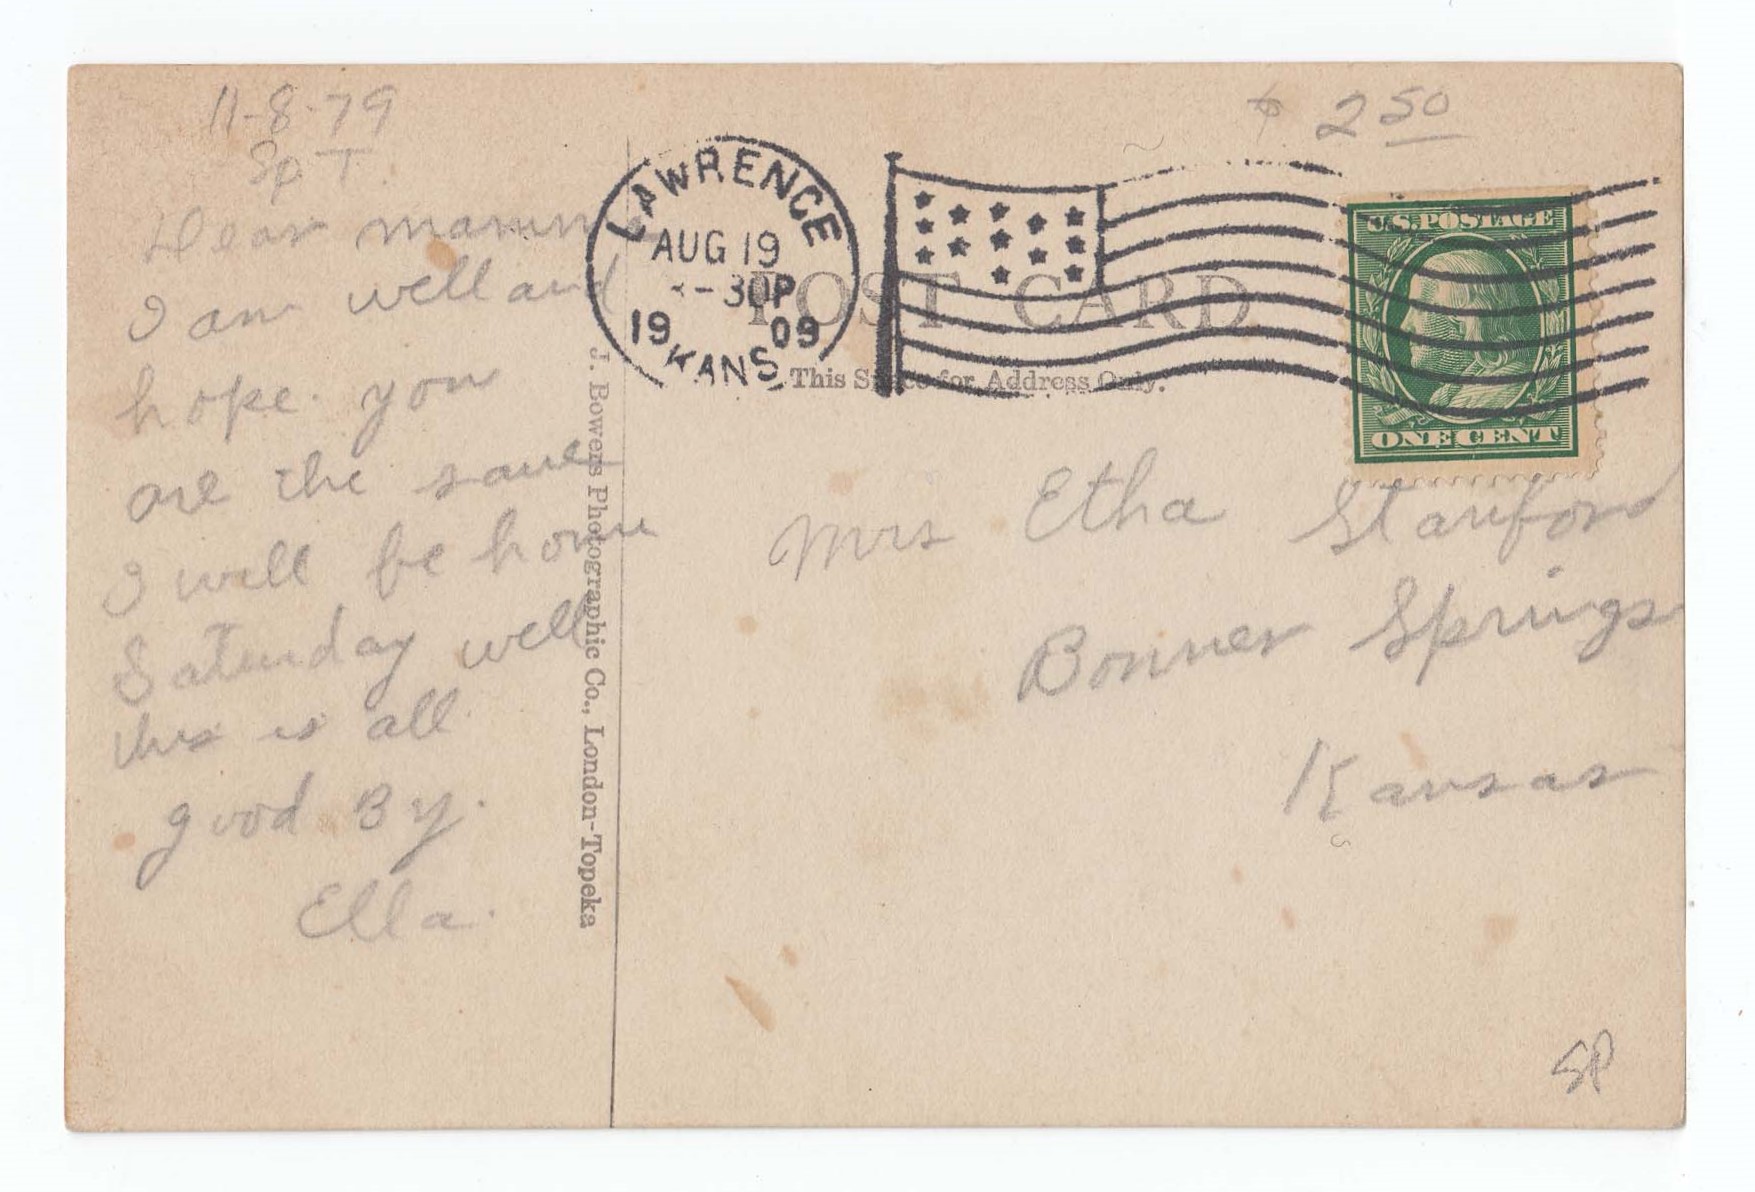 11-8-79
Sp T.
$ 2 50
Dear mamma
I am well and
hope. you
are the same
I will be home
Saturday well
this is all
good By.
Ella.
J. Bowers Photographic Co., London-Topeka
LAWRENCE
AUG 19
-30P
19 09
KANS.
POST CARD
This Space for Address Only.
U.S. POSTAGE
ONE CENT
Mrs Etha Stanford
Bonner Springs
Kansas
SP